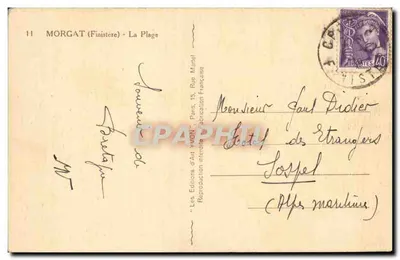 11 MORGAT (Finistère) - La Plage
Souvenir
de
Bretagne
Les Editions d'Art YVON, Paris, 15, Rue Martel
Reproduction interdite Fabrication Française
CPARAMA
40
Monsieur Paul Didier
Hotel des Etrangers
Sospel
(Alpes maritimes)